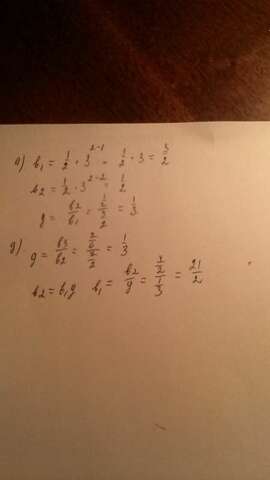 а) b₁ = 1/2 · 3²⁻¹ = 1/2 · 3 = 3/2
b₂ = 1/2 · 3²⁻² = 1/2
g = b₂/b₁ = (1/2)/(3/2) = 1/3
g = b₃/b₂ = = 1/3
b₂ = b₁g b₁ = b₂/g = (7/2)/(1/3) = 21/2